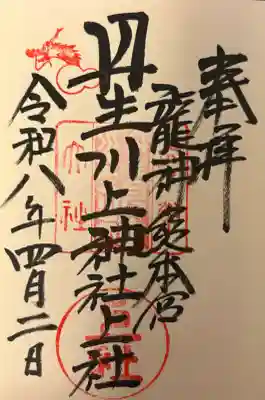 奉拝
龍神総本宮
丹生川上神社上社
令和八年四月二日
大社
上社